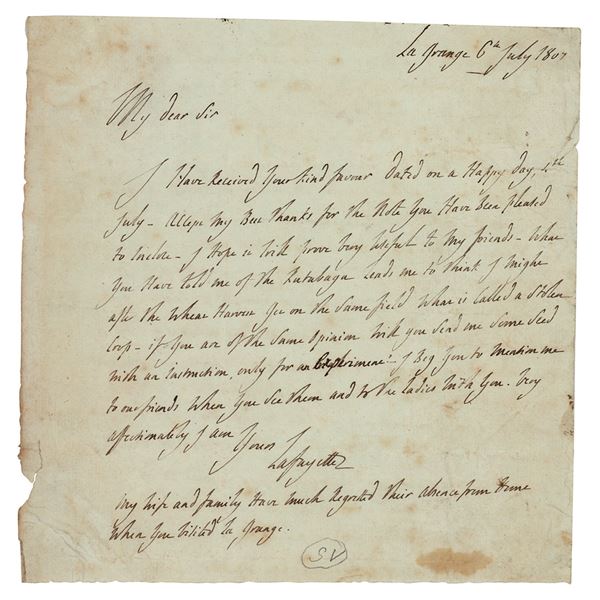 La Grange 6th July 1807
My dear Sir
I Have Received Your kind favour dated on a Happy day, 4th
July - Accept my Best thanks for the Note You Have Been pleased
to Inclose - I Hope it Will prove Very Usefull to My friends - What
You Have told me of the Rutabaga Leads me to think I might
after the Wheat Harvest Get on the Same field What is Called a Stolen
Crop - if You are of the Same Opinion Will you Send me Some Seed
with an Instruction, only for an Experiment - I Beg You to Mention me
to our friends When You See them and to the Ladies With You. Very
affectionately I am
Yours
Lafayette
My Wife and family Have much Regretted their absence from Home
When You Visited La Grange.
SV